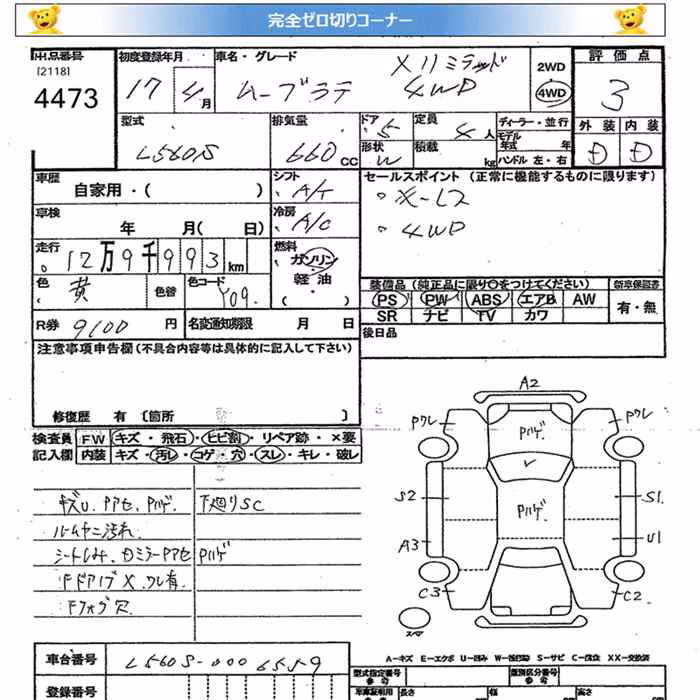 完全ゼロ切りコーナー
出品番号
[2118]
4473
初度登録年月
17 年 4 月
車名・グレード
Xリミテッド
ムーブラテ 4WD
2WD
4WD
評価点
3
外装 内装
D D
型式
L560S
排気量
660 CC
ドア 5
形状
定員 4 人
積載 kg
ディーラー・並行
モデル年式 年
ハンドル 左・右
車歴
自家用・( )
シフト
A/T
車検
年 月( 日)
冷房
A/C
走行
12万9千993 km
燃料
ガソリン
軽油
( )
色
黄
色替
色コード
Y09
R券 9100 円
名変通知期限 月 日
セールスポイント (正常に機能するものに限ります)
・キーレス
・4WD
装備品 (純正品に限り○をつけてください)
PS PW ABS エアB AW
SR ナビ TV カワ
新車保証書
有・無
後日品
注意事項申告欄(不具合内容等は具体的に記入して下さい)
修復歴 有 〔箇所 〕
検査員記入欄
FW キズ・飛石・ヒビ割・リペア跡・×要
内装 キズ・汚レ・コゲ・穴・スレ・キレ・破レ
キズU、Pアセ、Pハゲ
下廻りSC
ルームヤニ汚れ
シートしみ、DミラーPアセ Pハゲ
FドアノブX ワレ有
Fフォグ穴
A2
Pワレ
Pハゲ
Pワレ
S2
Pハゲ
S1
A3
U1
C3
C2
スペア
A-キズ E-エクボ U-凹み W-(波打ち) S-サビ C-(腐食) XX-交換済
車台番号
L560S-0006559
登録番号
型式指定番号
参考
類別区分番号
参考
車庫証明用
参考
長さ
幅
高さ